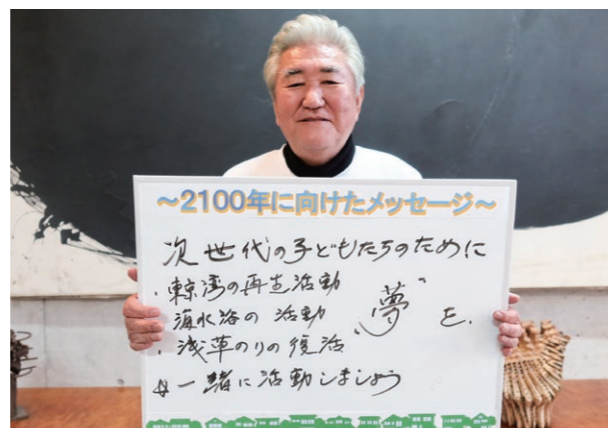 ～2100年に向けたメッセージ～
次世代の子どもたちのために
・東京湾の再生活動
海水浴の活動 "夢"を
・浅草のりの復活
一緒に活動しましょう